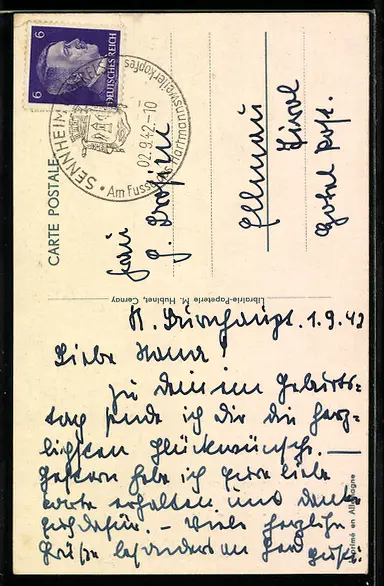 6
6
DEUTSCHES REICH
SENNHEIM (ELS)
02.9.42.-10
Am Fusse des Hartmannsweilerkopfes
CARTE POSTALE
Frau
Ellmau
Tirol
Hotel Post.
Librairie-Papeterie M. Hubinet, Cernay
Imprimé en Allemagne
N. Burnhaupt. 1.9.42
Liebe Mama!
Zu deinem Geburts-
tag sende ich Dir die herz-
lichsten Glückwünsche. —
Gestern habe ich Eure liebe
Karte erhalten und danke
Euch dafür. – Viele herzliche
Grüße besonders an